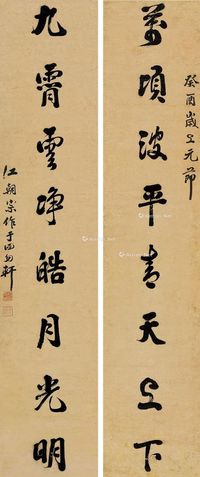 癸酉歲上元節
萬頃波平青天上下
九霄雲净皓月光明
江朝宗作于